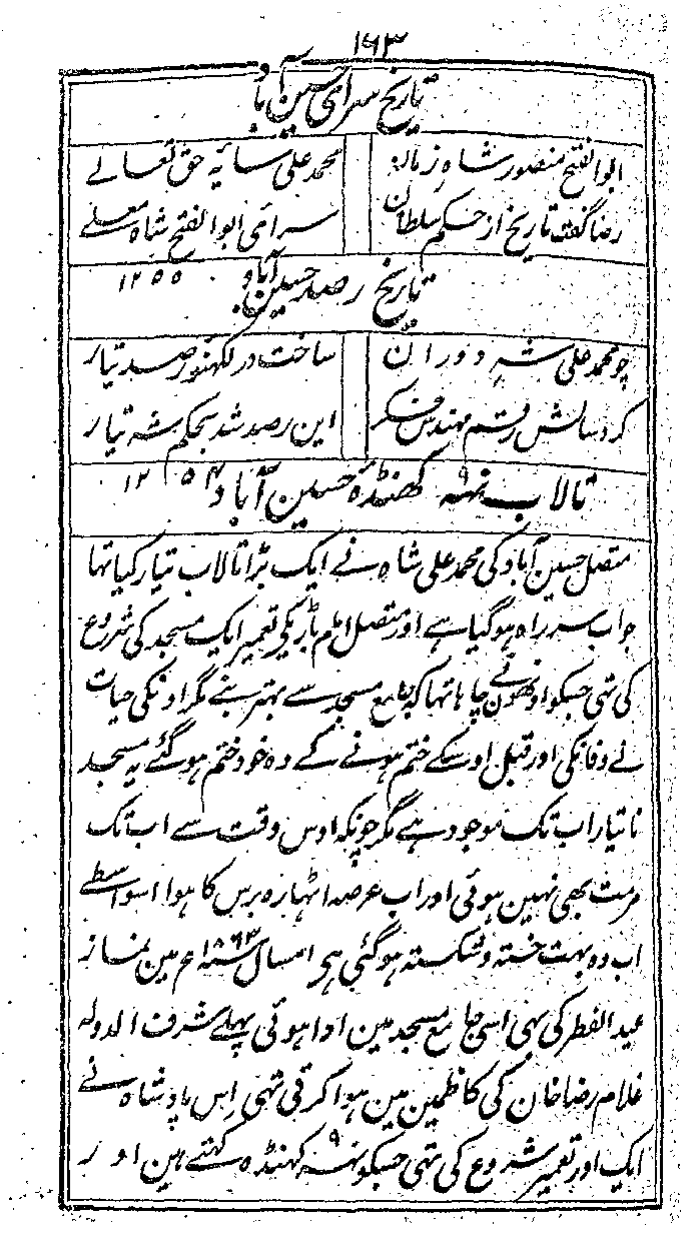 ۱۶۳
تاریخ سرای حسین آباد
ابوالفتح منصور شاہ زمانہ محمد علی سایہ حق تعالے
رضا گفت تاریخ از حکم سلطان سرای ابوالفتح شاہ معلے
۱۲۵۵
تاریخ رصد حسین آباد
چو محمد علی شہ دوران ساخت در لکھنؤ رصد تیار
کرد سالش رقم مہندس فکر این رصد شد بحکم شہ تیار
۱۲۵۴
تالاب نہہ کھنڈہ حسین آباد
متصل حسین آباد کی محمد علی شاہ نے ایک بڑا تالاب تیار کیا تہا
جو اب سر راہ ہو گیا ہے اور متصل امام باڑیکی تعمیر ایک مسجد کی شروع
کی تہی جسکو اونھون نے چاہا تہا کہ جامع مسجد سے بہتر بنے مگر اونکی حیات
نے وفا نکی اور قبل اوسکے ختم ہونے کے وہ خود ختم ہو گئے یہ مسجد
نا تیار اب تک موجود ہے مگر چونکہ اوس وقت سے اب تک
مرمت بھی نہین ہوئی اور اب عرصہ اٹہارہ برس کا ہوا اسواسطے
اب وہ بہت خستہ و شکستہ ہو گئی ہی امسال ۱۸۶۳ء مین نماز
عید الفطر کی بہی اسی جامع مسجد مین ادا ہوئی پہلے شرف الدولہ
غلام رضا خان کی کاظمین مین ہوا کرتی تہی اِس پادشاہ نے
ایک اور تعمیر شروع کی تہی جسکو نہہ کہنڈہ کہتے ہین اور